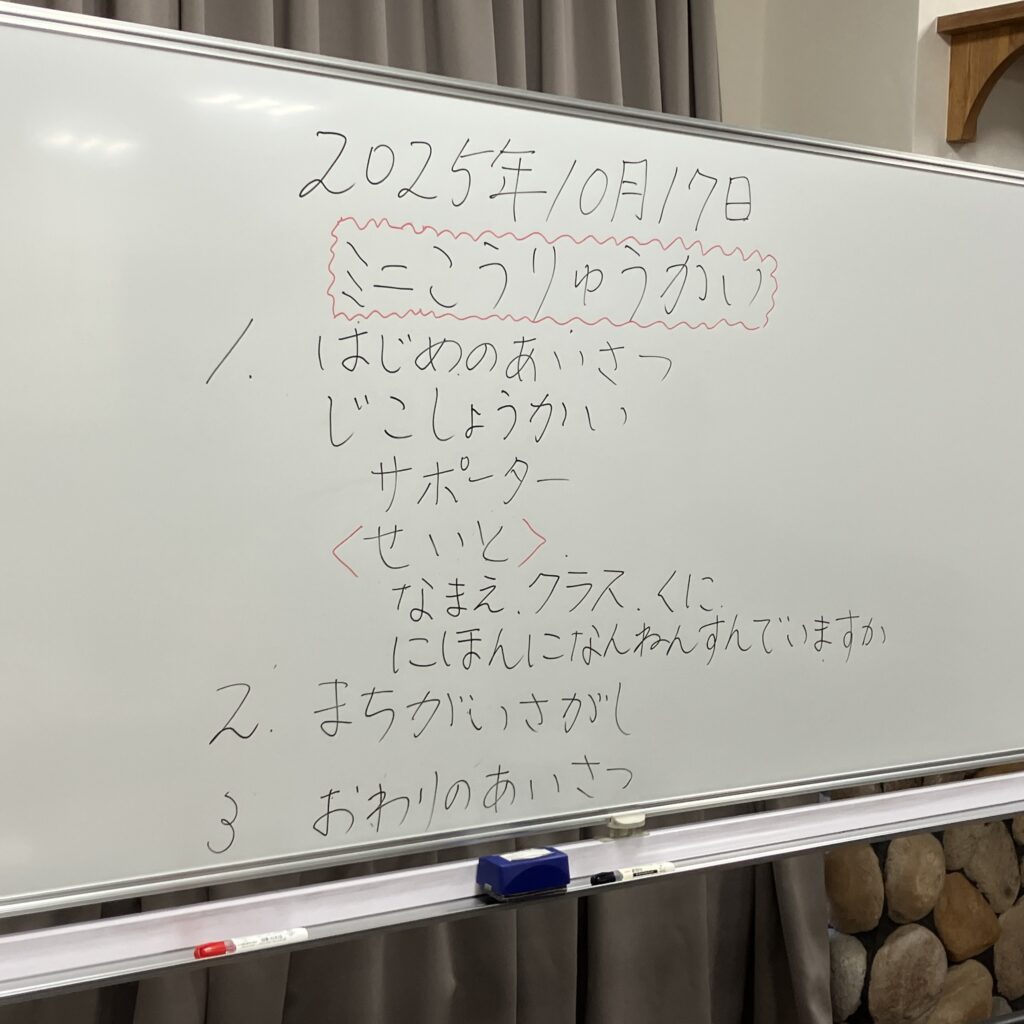 2025年10月17日
ミニこうりゅうかい
1. はじめのあいさつ
じこしょうかい
サポーター
<せいと>.
なまえ.クラス.くに.
にほんになんねんすんでいますか
2. まちがいさがし
3 おわりのあいさつ